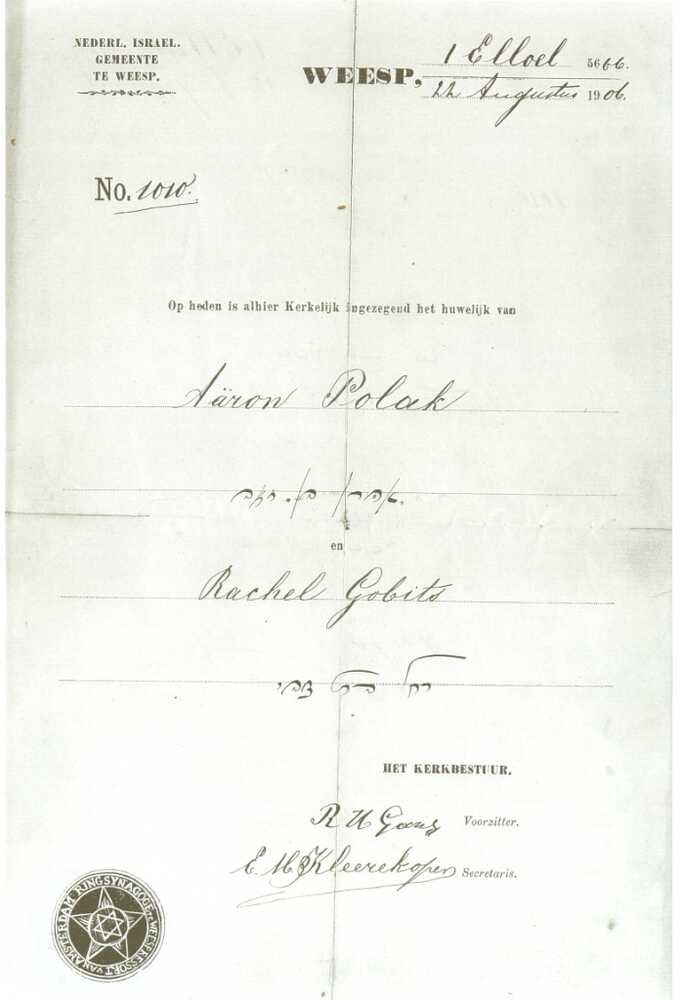 NEDERL. ISRAEL.
GEMEENTE
TE WEESP.
WEESP, 1 Elloel 5666
22 Augustus 1906.
No. 1010.
Op heden is alhier Kerkelijk ingezegend het huwelijk van
Aäron Polak
אהרן בן
en
Rachel Gobits
רחל בת צבי
HET KERKBESTUUR.
R H Gans Voorzitter.
E. M. Kleerekoper Secretaris.
RINGSYNAGOGE TE WEESP RESSORT VAN AMSTERDAM